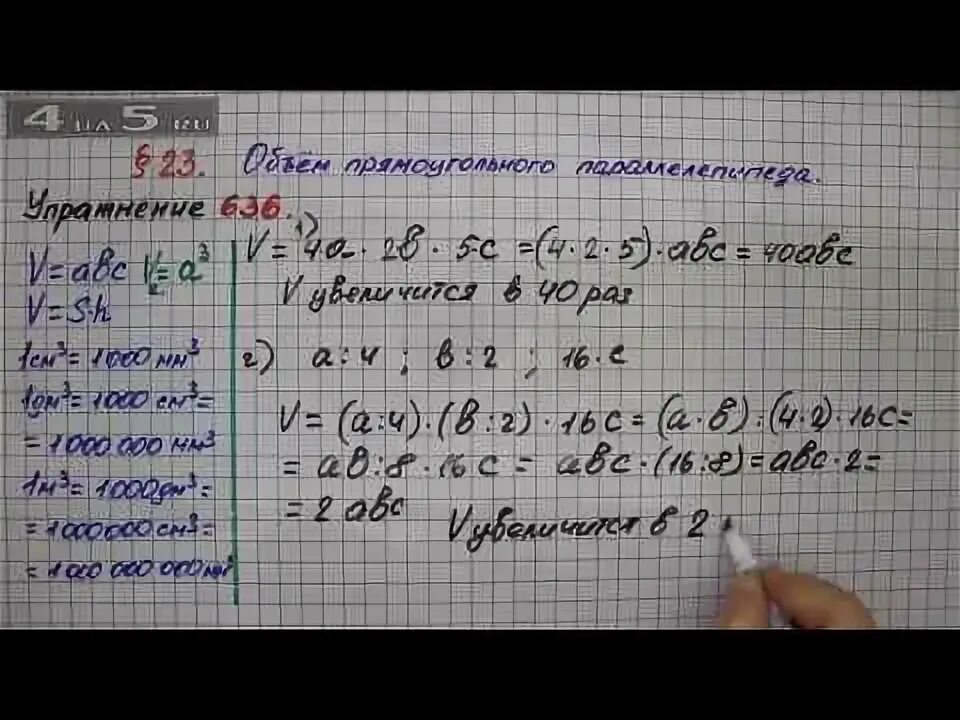 4 на 5 .ru
§ 23. Объём прямоугольного параллелепипеда.
Упражнение 636.
V = abc V = a³
V = S·h
1см³ = 1000 мм³
1дм³ = 1000 см³ =
= 1 000 000 мм³
1м³ = 1000дм³ =
= 1000000 см³ =
= 1 000 000 000 мм³
1)
V = 4a · 2b · 5c = (4 · 2 · 5) · abc = 40abc
V увеличится в 40 раз
2) a : 4 ; b : 2 ; 16 · c
V = (a:4) · (b:2) · 16c = (a · b) : (4 · 2) · 16c =
= ab:8 · 16c = abc · (16:8) = abc · 2 =
= 2 abc
V увеличится в 2